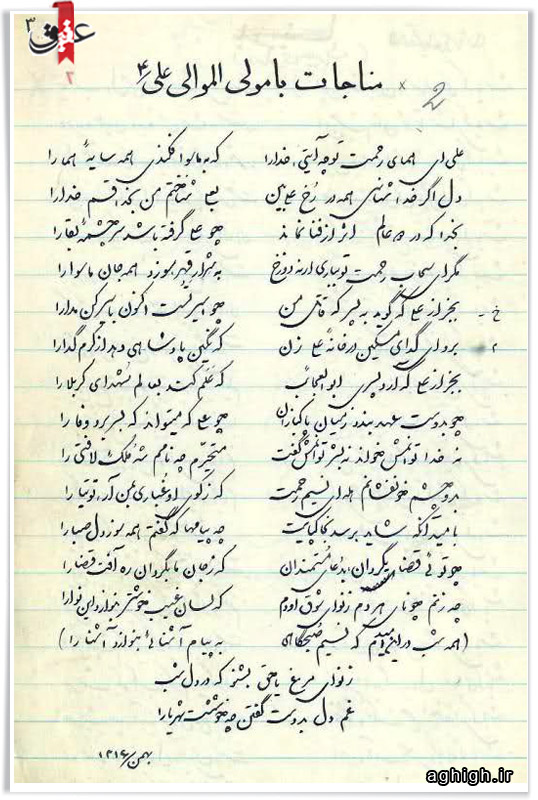 عقیق
۳
مناجات با مولی الموالی علی ع
2
علی ای همای رحمت تو چه آیتی خدا را که به ما سوا فکندی همه سایهٔ هما را
دل اگر خداشناسی همه در رخ علی بین به علی شناختم من بخدا قسم خدا را
بخدا که در دو عالم اثر از فنا نماند چو علی گرفته باشد سرچشمهٔ بقا را
مگر ای سحاب رحمت تو بباری ارنه دوزخ به شرار قهر سوزد همه جان ماسوا را
بجز از علی که گوید به پسر که قاتل من چو اسیر تست اکنون باسیر کن مدارا
برو ای گدای مسکین در خانهٔ علی زن که نگین پادشاهی دهد از کرم گدا را
بجز از علی که آرد پسری ابوالعجایب که علم کند بعالم شهدای کربلا را
چو بدوست عهد بندد ز میان پاکبازان چو علی که میتواند که بسر برد وفا را
نه خدا توانمش خواند نه بشر توانمش گفت متحیرم چه نامم شه ملک لافتی را
بدو چشم خونفشانم هله ای نسیم رحمت که ز کوی او غباری بمن آر توتیا را
بامید آنکه شاید برسد بخاکپایت چه پیامها که گفتم همه سوز دل صبا را
چو توئی قضای گردان بدعای مستمندان که ز جان ما بگردان ره آفت قضا را
چه زنم چو نای هر دم ز نوای شوق او دم که لسان غیب خوشتر بنوازد این نوا را
(همه شب در این امیدم که نسیم صبحگاهی به پیام آشنائی بنوازد آشنا را)
ز نوای مرغ یا حق بشنو که در دل شب
غم دل بدوست گفتن چه خوشست شهریارا
بهمن
aghigh.ir